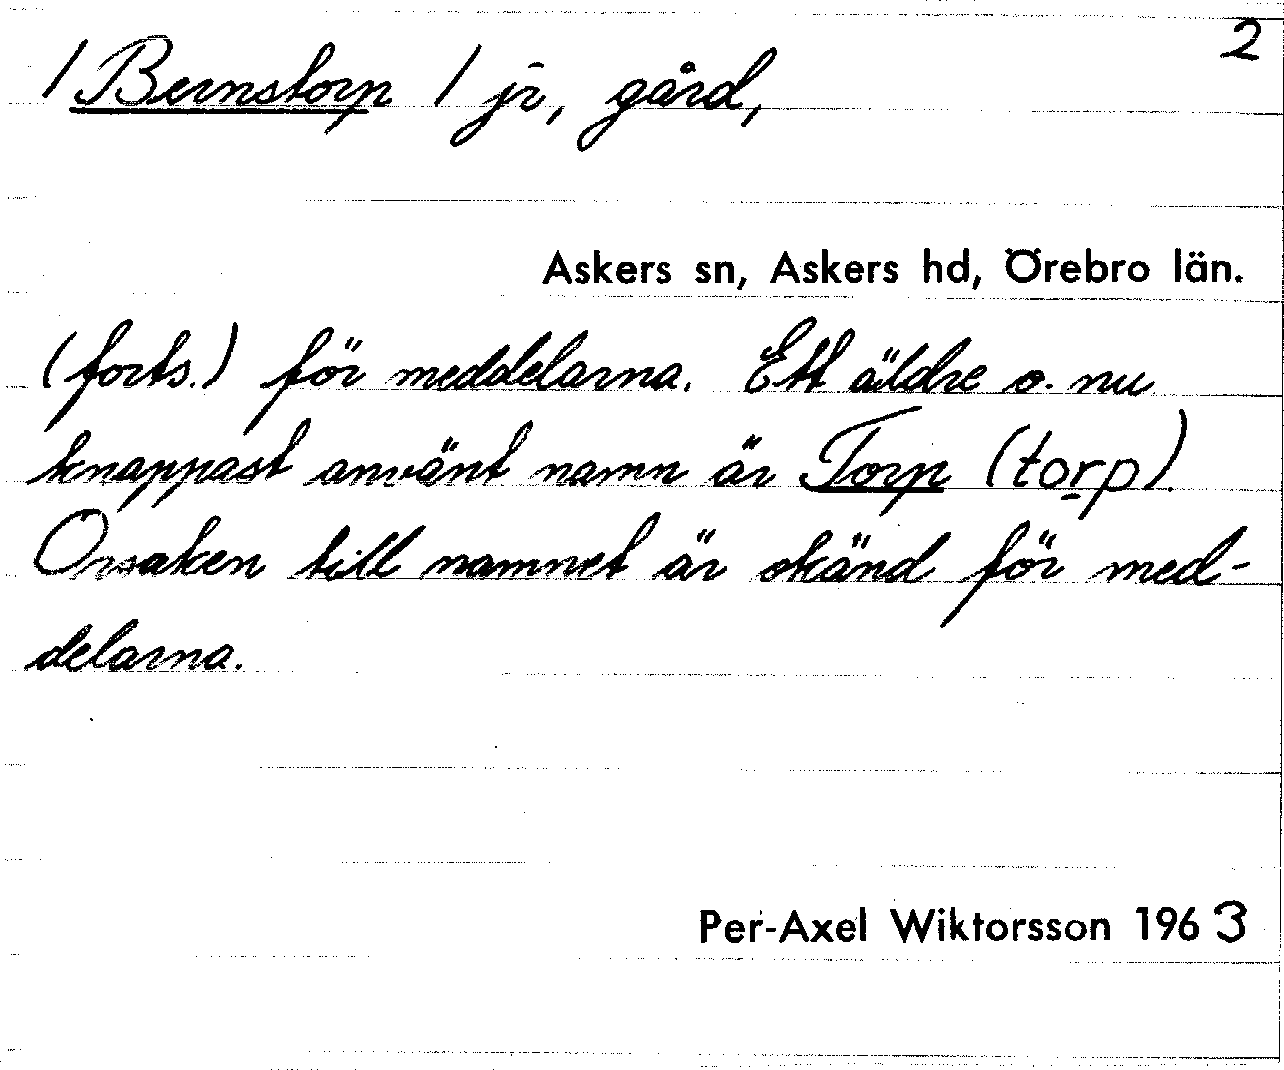 2
/ Bernstorp / jr, gård,
Askers sn, Askers hd, Örebro län.
(forts.) för meddelarna. Ett äldre o. nu
knappast använt namn är Torp (torp).
Orsaken till namnet är okänd för med-
delarna.
Per-Axel Wiktorsson 1963